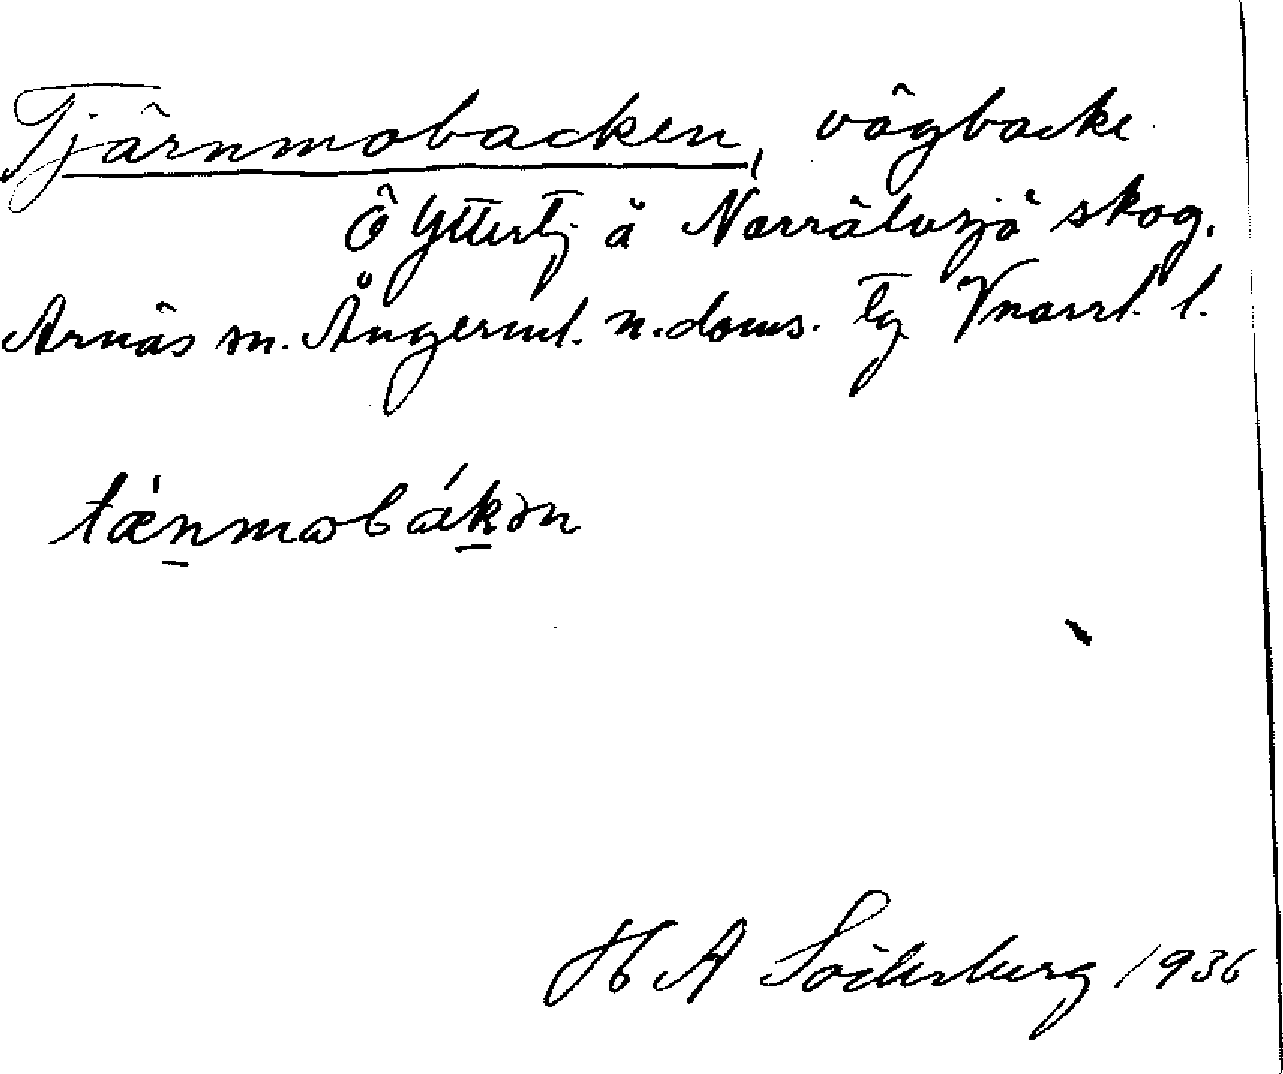 Tjärnmobacken, vägbacke
Ö Yttertj å Norrälvsjö skog.
Arnäs sn. Ångerml. n. doms. tg Vnorrl. l.
tæ̀nmωbákən
H A Söderberg 1936